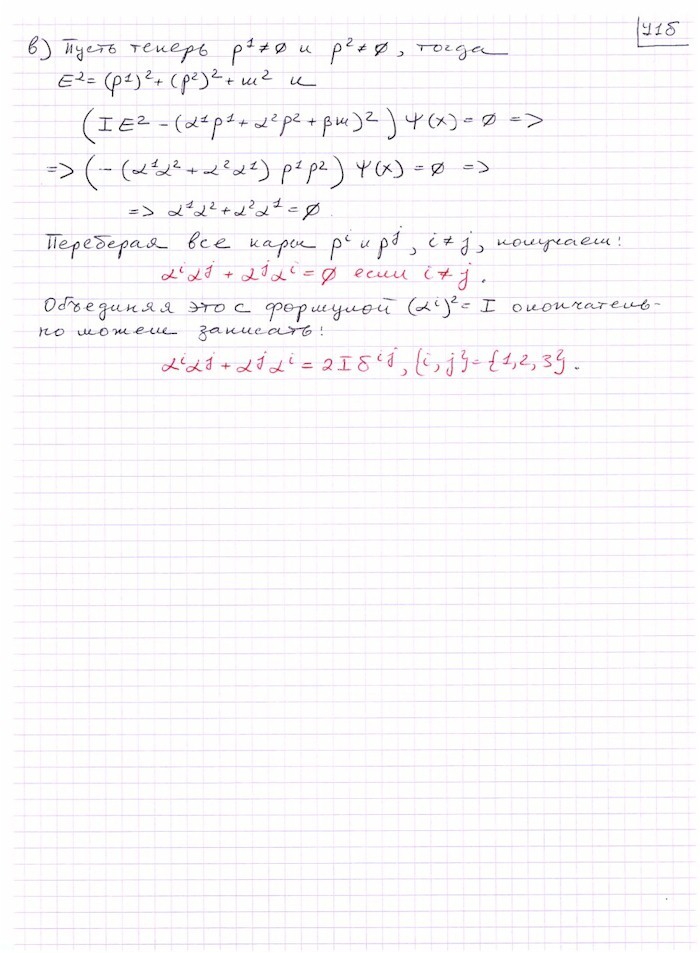 Ч1б
в) Пусть теперь p¹≠∅ и p²≠∅, тогда
E²=(p¹)²+(p²)²+m² и
(IE²-(α¹p¹+α²p²+βm)²)Ψ(x)=∅ =>
=> (-(α¹α²+α²α¹)p¹p²)Ψ(x)=∅ =>
=> α¹α²+α²α¹=∅.
Переберая все пары pⁱ и pʲ, i≠j, получаем:
αⁱαʲ+αʲαⁱ=∅ если i≠j.
Объединяя это с формулой (αⁱ)²=I окончатель-
но можем записать:
αⁱαʲ+αʲαⁱ=2Iδⁱʲ, {i,j}={1,2,3}.